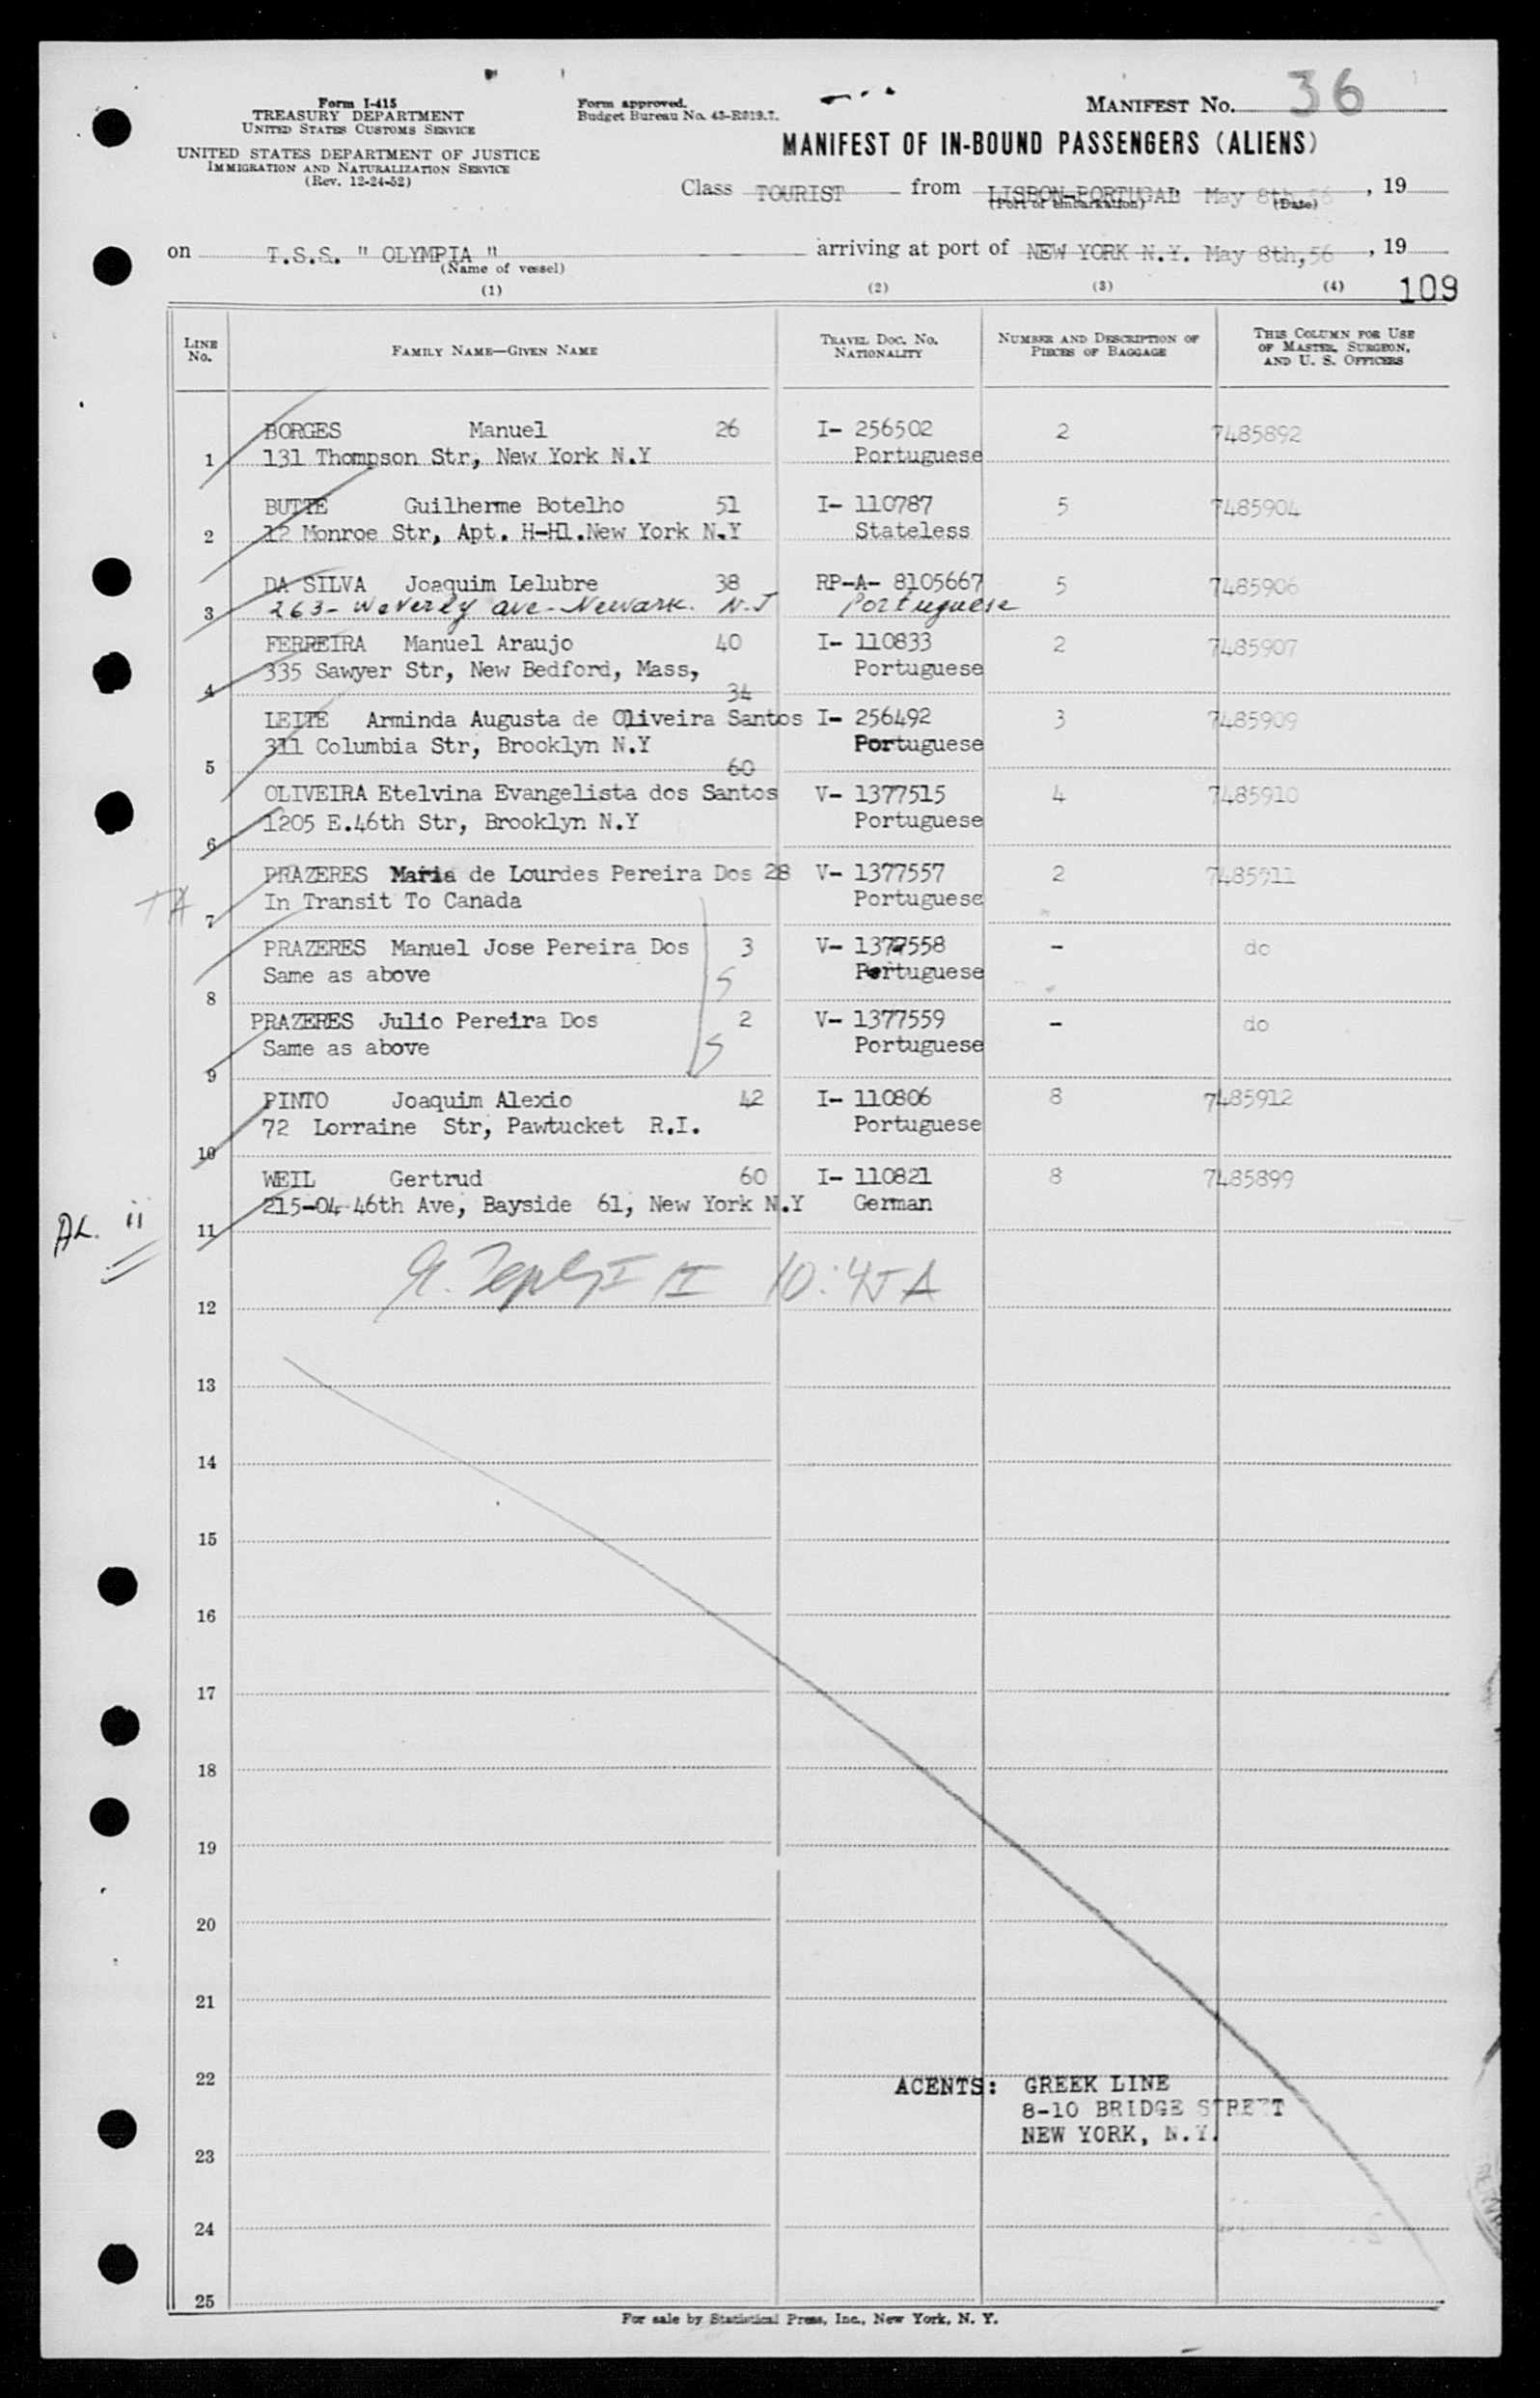 Form I-415
TREASURY DEPARTMENT
UNITED STATES CUSTOMS SERVICE
UNITED STATES DEPARTMENT OF JUSTICE
IMMIGRATION AND NATURALIZATION SERVICE
(Rev. 12-24-52)
Form approved.
Budget Bureau No. 43-R319.7.
MANIFEST No. 36
MANIFEST OF IN-BOUND PASSENGERS (ALIENS)
Class TOURIST from LISBON-PORTUGAL May 8th,56, 19
(Port of embarkation) (Date)
on T.S.S. " OLYMPIA " arriving at port of NEW YORK N.Y. May 8th,56, 19
(Name of vessel)
(1) (2) (3) (4) 109
LINE No. FAMILY NAME—GIVEN NAME TRAVEL DOC. No. NATIONALITY NUMBER AND DESCRIPTION OF PIECES OF BAGGAGE THIS COLUMN FOR USE OF MASTER, SURGEON, AND U. S. OFFICERS
BORGES Manuel 26 I- 256502 2 7485892
1 131 Thompson Str, New York N.Y Portuguese
BUTTE Guilherme Botelho 51 I- 110787 5 7485904
2 12 Monroe Str, Apt. H-Hl.New York N.Y Stateless
DA SILVA Joaquim Lelubre 38 RP-A- 8105667 5 7485906
3 263- Waverly ave- Newark. N.J Portuguese
FERREIRA Manuel Araujo 40 I- 110833 2 7485907
335 Sawyer Str, New Bedford, Mass, Portuguese
4 34
LEITE Arminda Augusta de Oliveira Santos I- 256492 3 7485909
311 Columbia Str, Brooklyn N.Y Portuguese
5 60
OLIVEIRA Etelvina Evangelista dos Santos V- 1377515 4 7485910
1205 E.46th Str, Brooklyn N.Y Portuguese
6
PRAZERES Maria de Lourdes Pereira Dos 28 V- 1377557 2 7485911
In Transit To Canada Portuguese
7
PRAZERES Manuel Jose Pereira Dos 3 V- 1377558 - do
Same as above Portuguese
8
PRAZERES Julio Pereira Dos 2 V- 1377559 - do
Same as above Portuguese
9
PINTO Joaquim Alexio 42 I- 110806 8 7485912
72 Lorraine Str, Pawtucket R.I. Portuguese
10
WEIL Gertrud 60 I- 110821 8 7485899
215-04 46th Ave, Bayside 61, New York N.Y German
11
10:45 A
12
13
14
15
16
17
18
19
20
21
22
AGENTS: GREEK LINE
8-10 BRIDGE STREET
NEW YORK, N.Y.
23
24
25
For sale by Statistical Press, Inc., New York, N. Y.